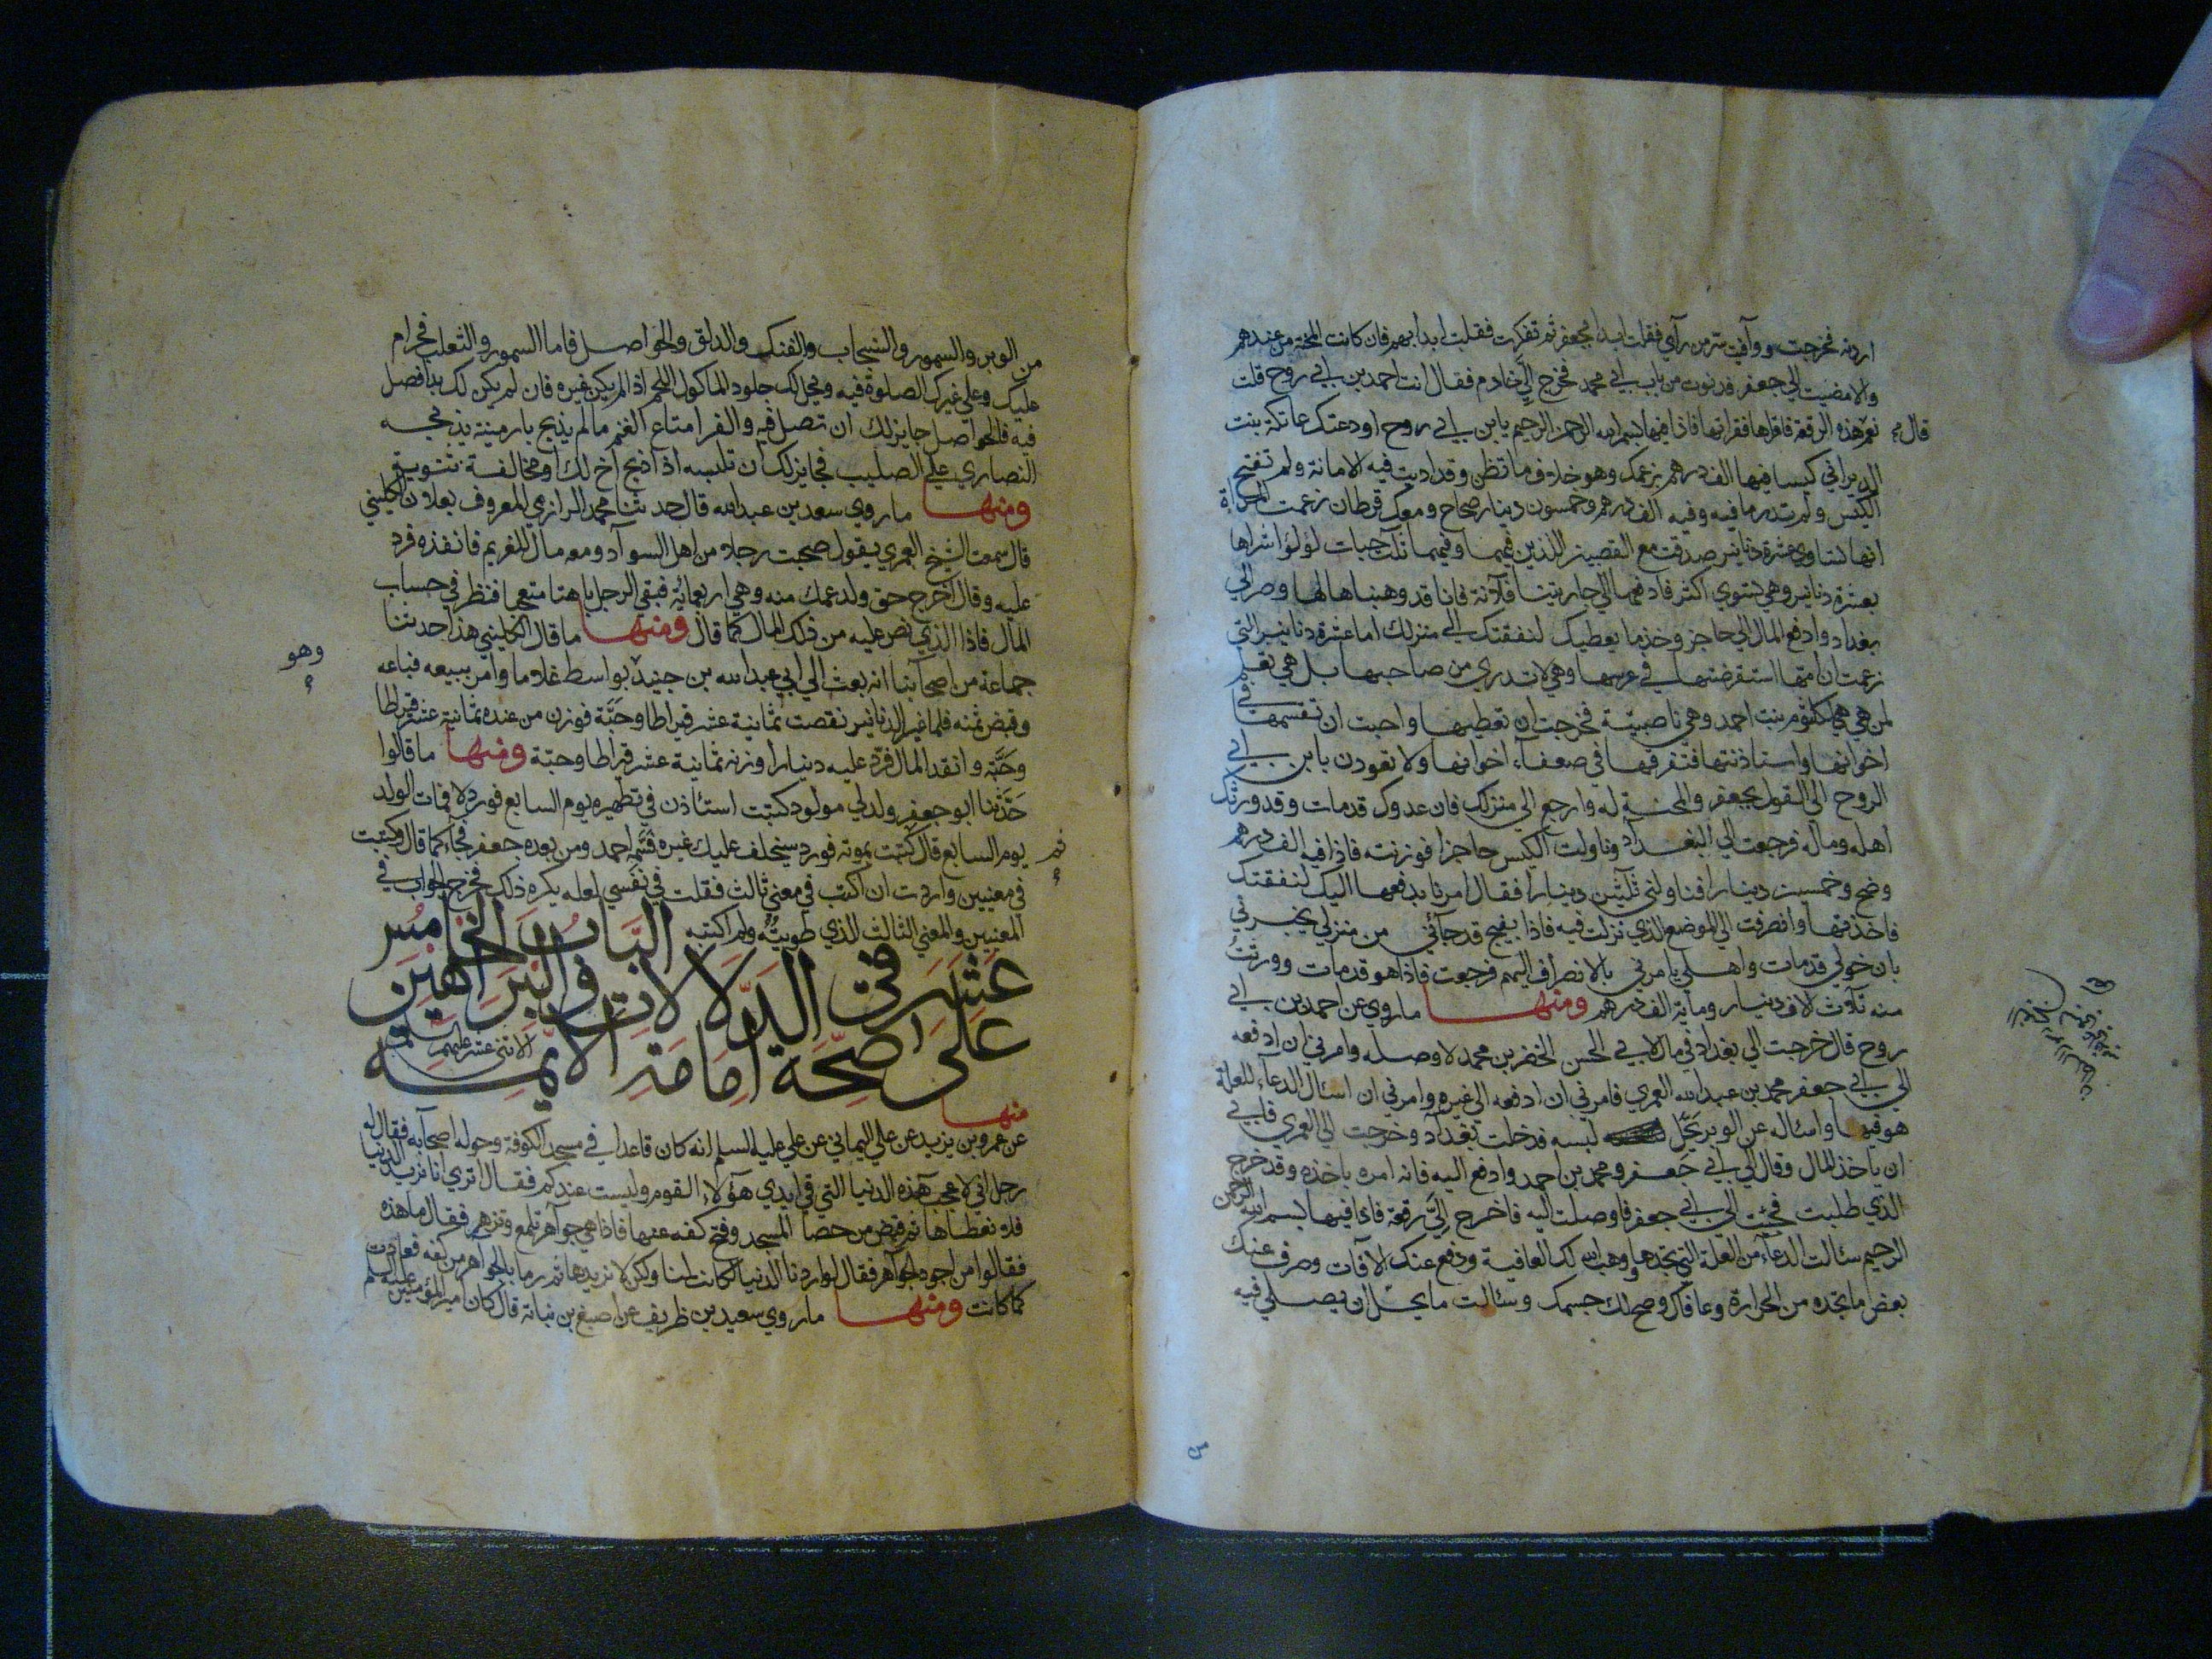 اردته فخرجت ووآفيت سرمن رآي فقلت ابدا بجعفر ثم تفكرت فقلت ابدا بهم فان كانت المحنة من عندهم
والا مضيت الي جعفر فدنوت من باب ابي محمد فخرج اليّ خادم فقال انت احمد بن ابي روح قلت
نعم هذه الرقعة فاقراها فقراتها فاذا فيها بسم الله الرحمن الرحيم يابن ابي روح اودعتك عاتكة بنت
قال
الديراني كيسا فيها الف درهم بزعمك وهو خلاف ما تظن وقد اديت فيه الامانة ولم تفتح
الكيس ولم تدر ما فيه وفيه الف درهم وخمسون دينار صحاح ومعك قرطان زعمت المراة
انها تساوي عشرة دنانير صدقت مع الفصين الذين فيهما وفيهما ثلث حبات لؤلؤ اشراها
بعشرة دنانير وهي تستوي اكثر فادفعهما الي جاريتنا فلآنة فانا قد وهبناها لها وصر الي
بغداد وادفع المال الي حاجز وخذ ما يعطيك لنفقتك الي منزلك اما عشرة دنانير التي
زعمت ان امها استقرضتها في عرسها وهي لا تدري من صاحبها بل هي تعلم
لمن هي هي لكلثوم بنت احمد وهي ناصبيّة فخرجت ان تعطيها واحبت ان تقسمها في
اخوانها واستاذنتها فتفرقها في صعفاء اخوانها ولا تعودن يا بن ابي
الروح الي القول بجعفر والمحنة له وارجع الي منزلك فان عدوك قدمات وقد ورثك
اهله وماله فرجعت الي البغداد وناولت الكيس حاجزا فوزنته فاذا فيه الف درهم
وضح وخمسين دينارا فناولني ثلثين دينارا فقال امرنا بدفعها اليك لنفقتك
فاخذتها وانصرفت الي الموضع الذي نزلت فيه فاذا بفيج قد جائني من منزلي يخبرني
بان خولي قدمات واهلي يامرني بالانصراف اليهم فرجعت فاذا هو قدمات وورثتُ
منه ثلآث لاف دينار ومآية الف درهم ومنها ماروي عن احمد بن ابي
روح قال خرجت الي بغداد في مال لابي الحسن الخضر بن محمد لاوصله وامرني ان ادفعه
الي ابي جعفر محمد بن عبد الله العمري فامرني ان ادفعه الي غيره وامرني ان اسئال الدعاء للعلة
هو فيها واسئاله عن الوبر يحّل لبسه فدخلت بغداد وخرجت الي العمري فابي
ان ياخذ المال وقال الي ابي جعفر ومحمد بن احمد وادفع اليه فانه امره باخذه وقد خرج
الذي طلبت فجئت الي ابي جعفر فاوصلت اليه فاخرج اليّ رقعة فاذا فيها بسم الله الرحمن
الرحيم سئالت الدعاء من العلة التي تجدها ووهب الله لك العافية ودفع عنك الآفات وصرف عنك
بعض ما تجده من الحرارة وعافاك وصح لك جسمك وسئالت ما يحل ان يصلي فيه
من الوبر والسمور والسنجاب والفنك والدلق والحواصل فاما السمور والثعلب فحرام
عليك وعلي غيرك الصلوة فيه ويحل لك جلود الماكول اللحم اذا لم يكن غيره فان لم يكن لك بد افصل
فيه فالحواصل جايز لك ان تصل فيه والفرا متاع الغنم مالم يذبح بارمينية يذبحه
النصاري علي الصليب فجايز لك ان تلبسه اذا ذبح اخ لك او مخالفة تثويبق
ومنها ماروي سعد بن عبد الله قال حدثنا محمد الرازي المعروف بعلان الكليني
قال سمعت الشيخ العمري يقول صحبت رجلا من اهل السوآد ومعه مال للغريم فانفذه فرد
عليه وقال اخرج حق ولد عمك منه وهي اربعمائة فبقي الرجل باهتا متعجبا فنظر في حساب
المال فاذا الذي نص عليه من ذلك المال كما قال ومنها ما قال الكليني هذا حدثنا
جماعة من اصحآبنا انه بعث الي ابي عبد الله بن جنيد بواسط غلاما وامر ببيعه فباعه
وهو
وقبض ثمنه فلما عير الدنانير نقصت ثمانية عشر قيراطا وحبّة فوزن من عنده ثمانية عشر قيراطا
وحبّة وانقد المال فردّ عليه دينارا وزنه ثمانية عشر قيراطا وحبّة ومنها ما قالوا
حدّثنا ابو جعفر ولد لي مولود كتبت استئاذن في تطهيره يوم السابع فورد لا فمات الولد
يوم السابع قال كتبت بموته فورد سيخلف عليك غيره فسّمه احمد ومن بعده جعفر فجآء كما قال وكتبت
ثم
في معنيين واردت ان اكتب في معني ثالث فقلت في نفسي لعله يكره ذلك فخرج الجواب في
المعنيين والمعني الثالث الذي طويته ولم اكتبه البَاب الخامس
عشر في الدلالات والبراهين
على صحة امامة الائمه الاثني عشر عليهم السلم
منها
عن عمرو بن يزيد عن علي اليماني عن علي عليه السلم انه كان قاعدا في مسجد الكوفة وحوله اصحآبه فقال له
رجل اني لاعجب هذه الدنيا التي في ايدي هؤلآء القوم وليست عندكم فقال اتري انا نريد الدنيا
فلا نعطاها ثم قبض من حصا المسجد وفتح كفه عنها فاذا هي جوآهر تلمع وتزهر فقال ما هذه
فقالوا من اجود الجوآهر فقال لو اردنا الدنيا لكانت لنا ولكن لا نريدها ثم رما بالجواهر من كفه فعادت
كما كانت ومنها ماروي سعيد بن ظريف عن اصبغ بن نباتة قال كان امير المؤمنين عليه السلم